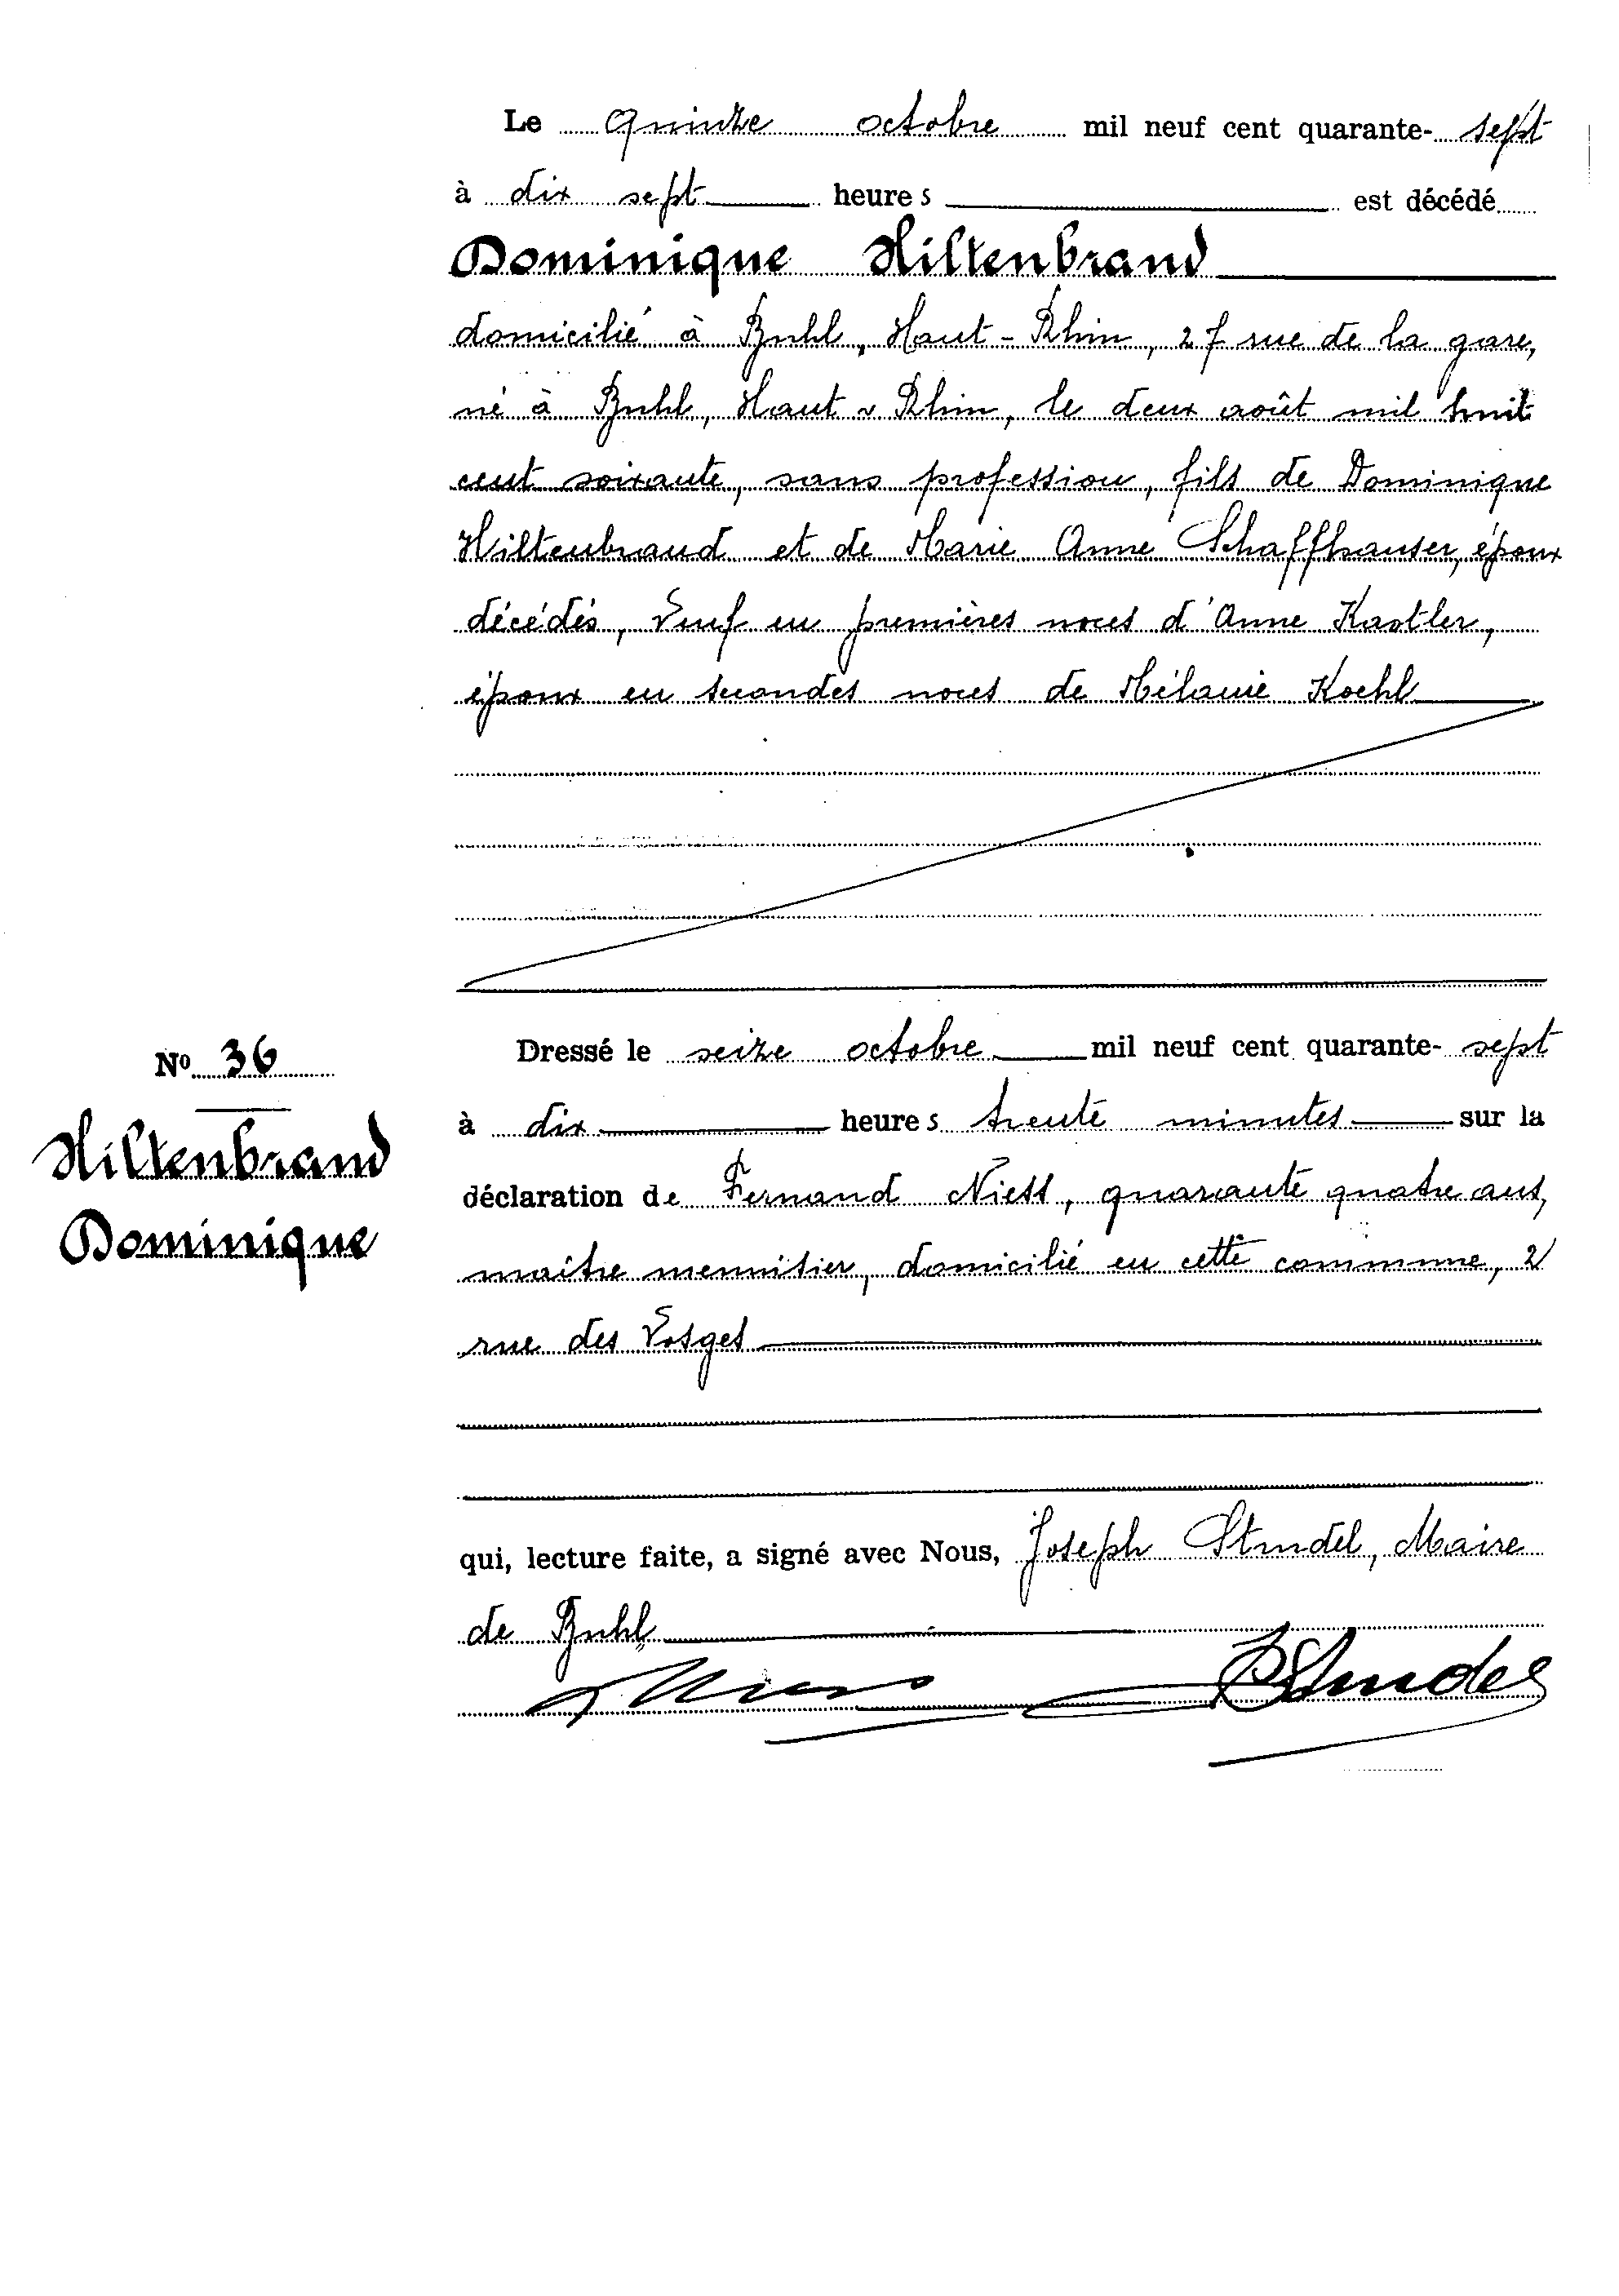 Le quinze octobre mil neuf cent quarante- sept
à dix sept heures est décédé
Dominique Hiltenbrand
domicilié à Buhl, Haut-Rhin, 27 rue de la gare,
né à Buhl, Haut-Rhin, le deux août mil huit
cent soixante, sans profession, fils de Dominique
Hiltenbrand et de Marie Anne Schaffhauser, époux
décédés, Veuf en premières noces d'Anne Kastler,
époux en secondes noces de Mélanie Koehl
Nº 36
Hiltenbrand
Dominique
Dressé le seize octobre mil neuf cent quarante- sept
à dix heures trente minutes sur la
déclaration de Fernand Niess, quarante quatre ans,
maître menuisier, domicilié en cette commune, 2
rue des Vosges
qui, lecture faite, a signé avec Nous, Joseph Studel, Maire
de Buhl